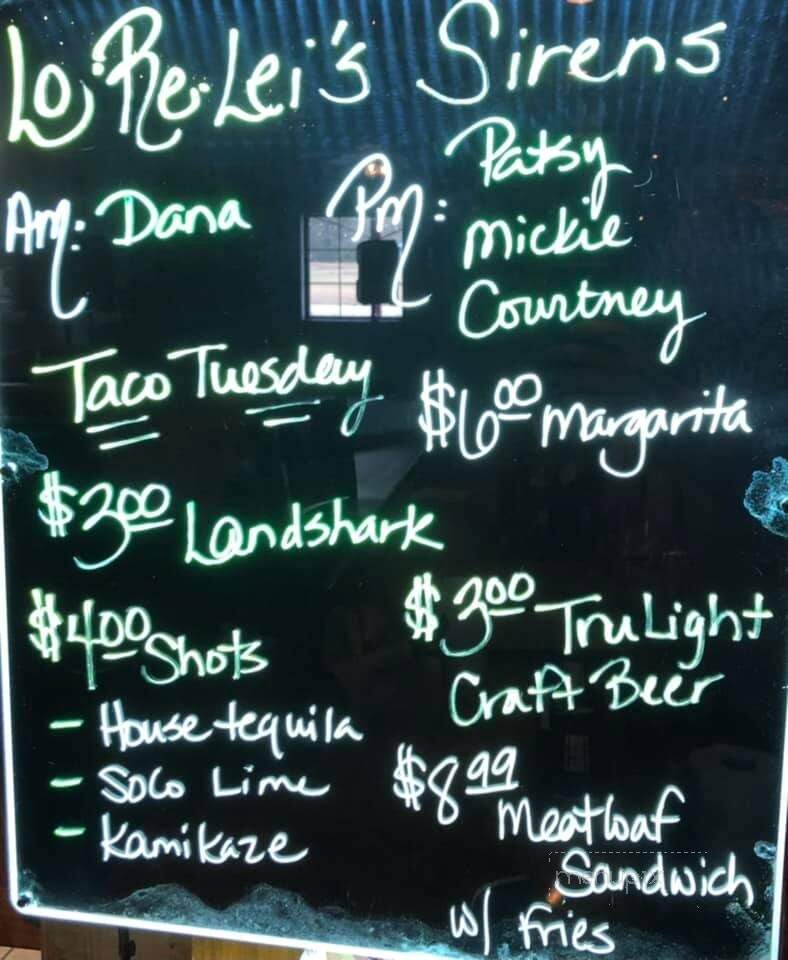 Lo·Re·Lei's Sirens
Am: Dana
Pm: Patsy
Mickie
Courtney
Taco Tuesday
$6.00 Margarita
$3.00 Landshark
$4.00 Shots
- House tequila
- SoCo Lime
- Kamikaze
$3.00 TruLight
Craft Beer
$8.99
Meatloaf
Sandwich
w/ Fries